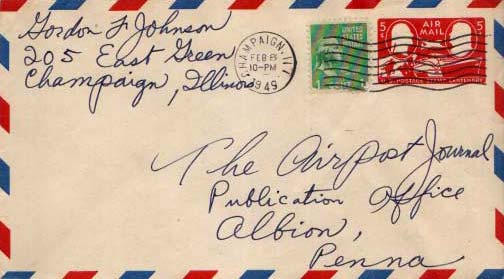 Gordon F. Johnson
205 East Green
Champaign, Illinois
CHAMPAIGN, ILL
FEB 8
10-PM
1949
UNITED STATES
5 AIR MAIL 5
U.S. POSTAGE STAMP CENTENARY
The Airpost Journal
Publication Office
Albion,
Penna